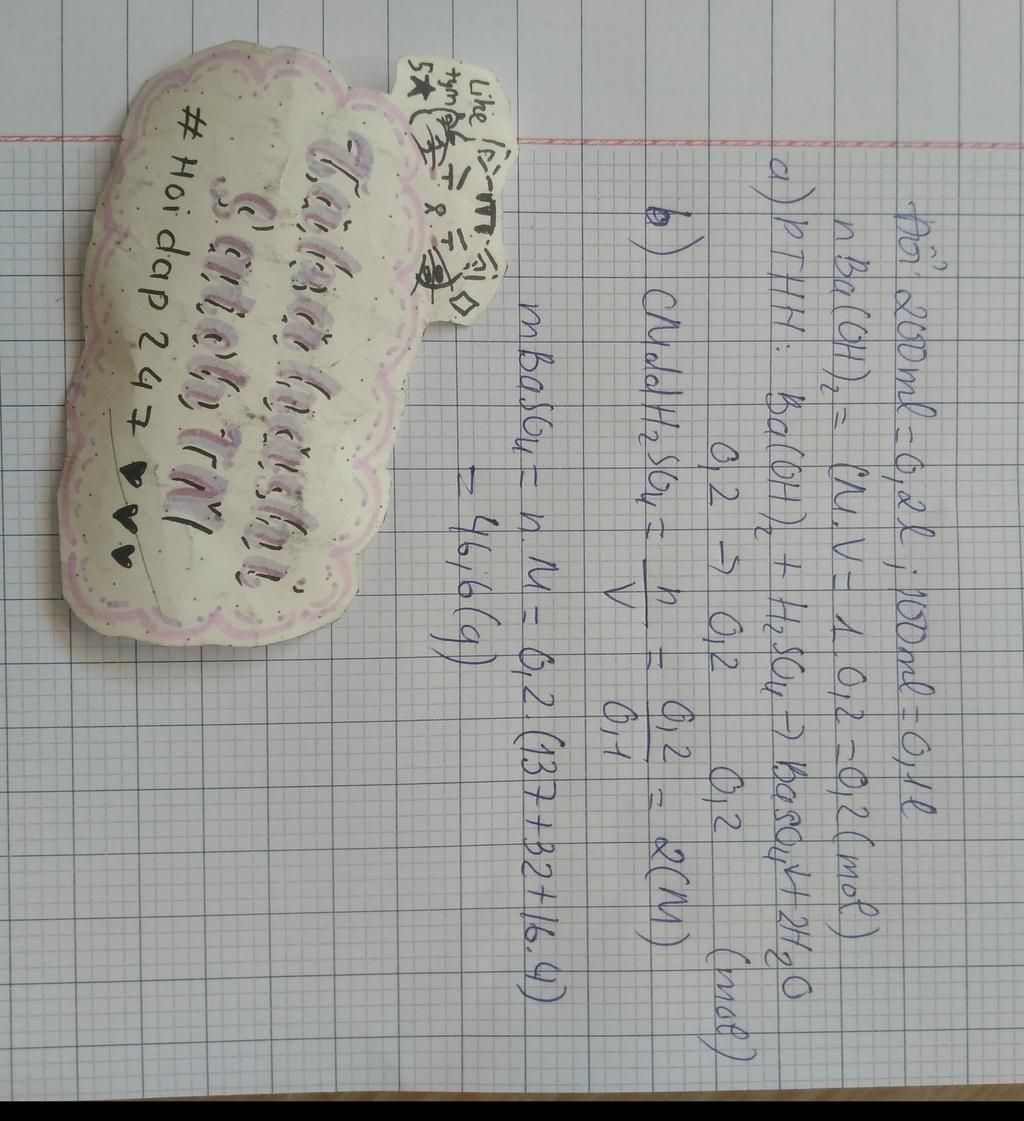 Đổi 200ml = 0,2l ; 100ml = 0,1l
nBa(OH)₂ = CM.V = 1.0,2 = 0,2(mol)
a) PTHH: Ba(OH)₂ + H₂SO₄ → BaSO₄↓ + 2H₂O
0,2 → 0,2 0,2 (mol)
b) CMddH₂SO₄ = n/V = 0,2/0,1 = 2(M)
mBaSO₄ = n.M = 0,2.(137+32+16.4)
= 46,6(g)
Like
5★
# Hoidap 247 ♥♥♥